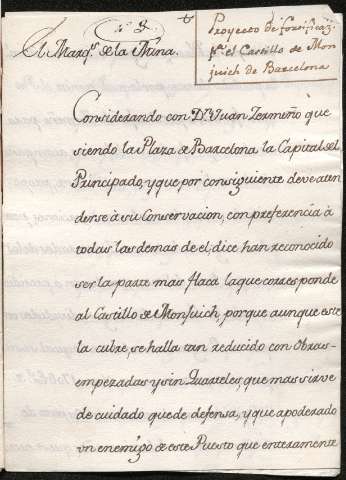 nº 3
Proyecto de fortificaz.
pª el Castillo de Mon
juich de Barcelona
El Marq.s de la Mina.
Considerando con Dn. Juan Zermeño que
siendo la Plaza de Barcelona la Capital del
Principado, y que por consiguiente deve aten
dense à su Conservacion, con preferencia à
todas las demas de el, dice han reconocido
ser la parte mas flaca la que corresponde
al Castillo de Monjuich, porque aunque este
la cubre, se halla tan reducido con Obras
empezadas y sin Quarteles, que mas sirve
de cuidado que de defensa, y que apoderado
vn enemigo de este Puesto que enteramente